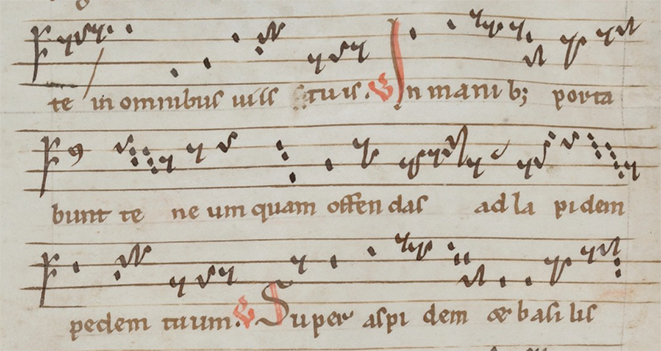 te in omnibus uiis tuis. V In manib; porta
bunt te ne um quam offen das ad la pidem
pedem tuum. V Super aspi dem et basi lis